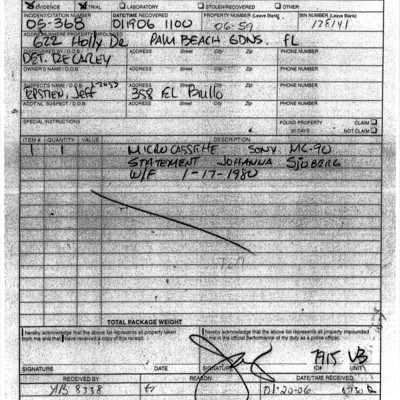 EVIDENCE TRIAL LABORATORY STOLEN/RECOVERED OTHER
INCIDENT/CITATION NUMBER DATE/TIME RECOVERED PROPERTY NUMBER (Leave Blank) BIN NUMBER (Leave Blank)
05-368 011906 1100 06-59
ADDRESS WHERE PROPERTY IMPOUNDED Street City Zip
622 Holly Dr PALM BEACH GDNS. FL
DISCOVERED BY / D.O.B. ADDRESS Street City Zip PHONE NUMBER
DET. RECAREY
OWNER'S NAME / D.O.B. ADDRESS Street City Zip PHONE NUMBER
SUSPECT'S NAME / D.O.B. ADDRESS Street City Zip PHONE NUMBER
EPSTIEN, Jeff 358 EL Brillo
ADD'TNL SUSPECT / D.O.B. ADDRESS Street City Zip PHONE NUMBER
SPECIAL INSTRUCTIONS FOUND PROPERTY CLAIM
DAYS NOT CLAIM
ITEM # QUANTITY VALUE DESCRIPTION
1 1 MICROCASSETTE SONY MC-90
STATEMENT JOHANNA SJOBERG
W/F 1-17-1980
TOTAL PACKAGE WEIGHT
I hereby acknowledge that the above list represents all property taken
from me and that I have received a copy of this receipt.
I hereby acknowledge that the above list represents all property impounded
by me in the official performance of my duty as a police officer.
7915 VB
SIGNATURE DATE SIGNATURE ID# UNIT
RECEIVED BY REASON DATE/TIME RECEIVED
01-20-06